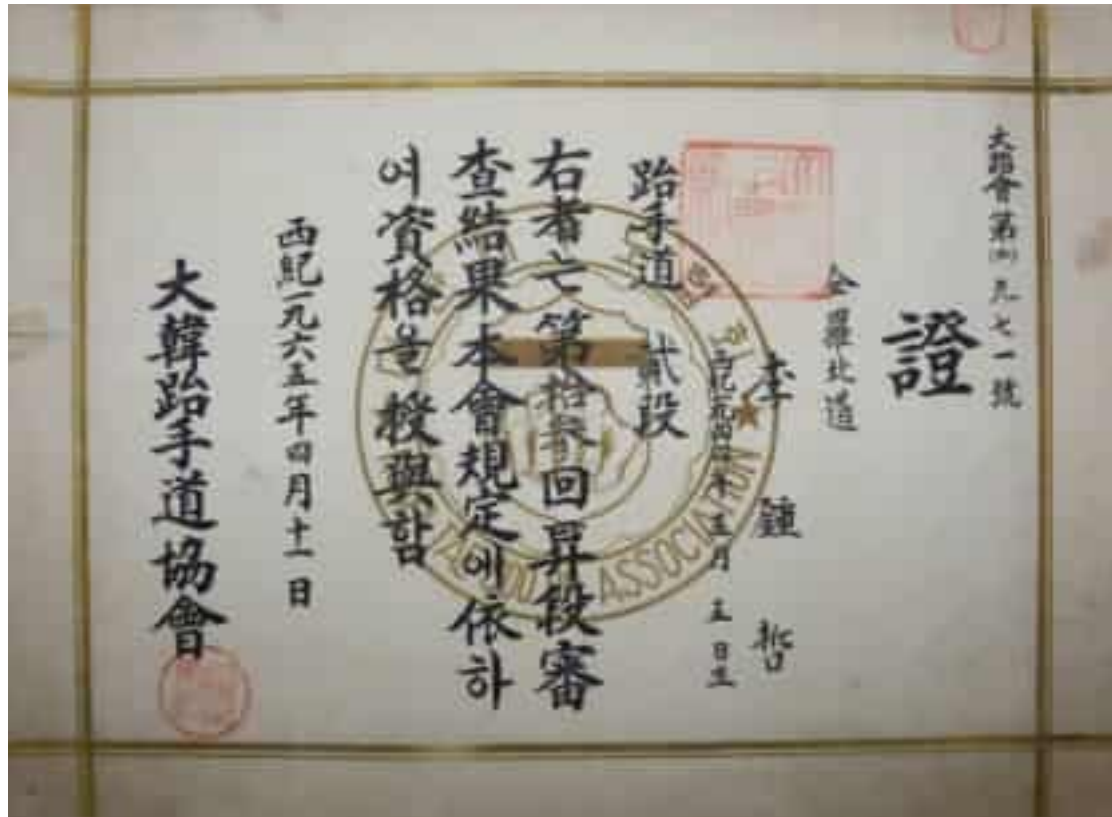 大跆會第㈣九七一號
證
全羅北道
李鍾哲
五月五日生
跆手道 貳段
右者亡第拾參回昇段審
查結果本會規定에依하
여資格을授與함
西紀一九六五年四月十一日
大韓跆手道協會
ASSOCIATION